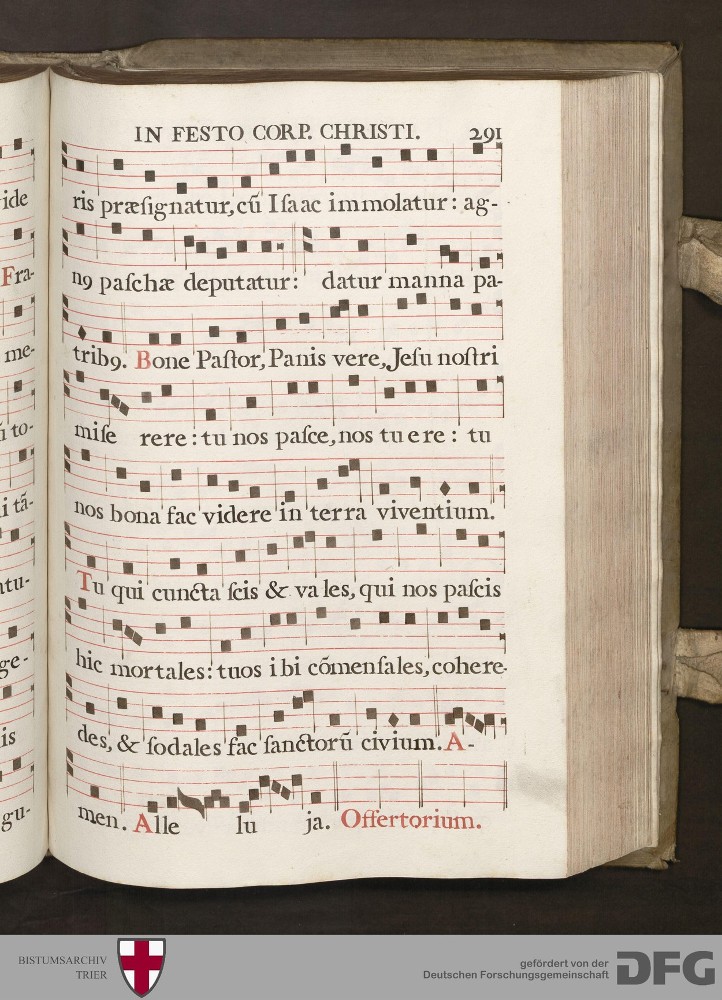 IN FESTO CORP. CHRISTI. 291
ris præſignatur, cū Iſaac immolatur: ag-
nꝰ paſchæ deputatur: datur manna pa-
tribꝰ. Bone Paſtor, Panis vere, Jeſu noſtri
miſe rere: tu nos paſce, nos tuere: tu
nos bona fac videre in terra viventium.
Tu qui cuncta ſcis & vales, qui nos paſcis
hic mortales: tuos ibi cõmenſales, cohere-
des, & ſodales fac ſanctorū civium. A-
men. Alle lu ja. Offertorium.
ide
Fra-
me-
ū to-
i tā-
ntu-
ge-
is
gu-
BISTUMSARCHIV
TRIER
gefördert von der
Deutschen Forschungsgemeinschaft
DFG